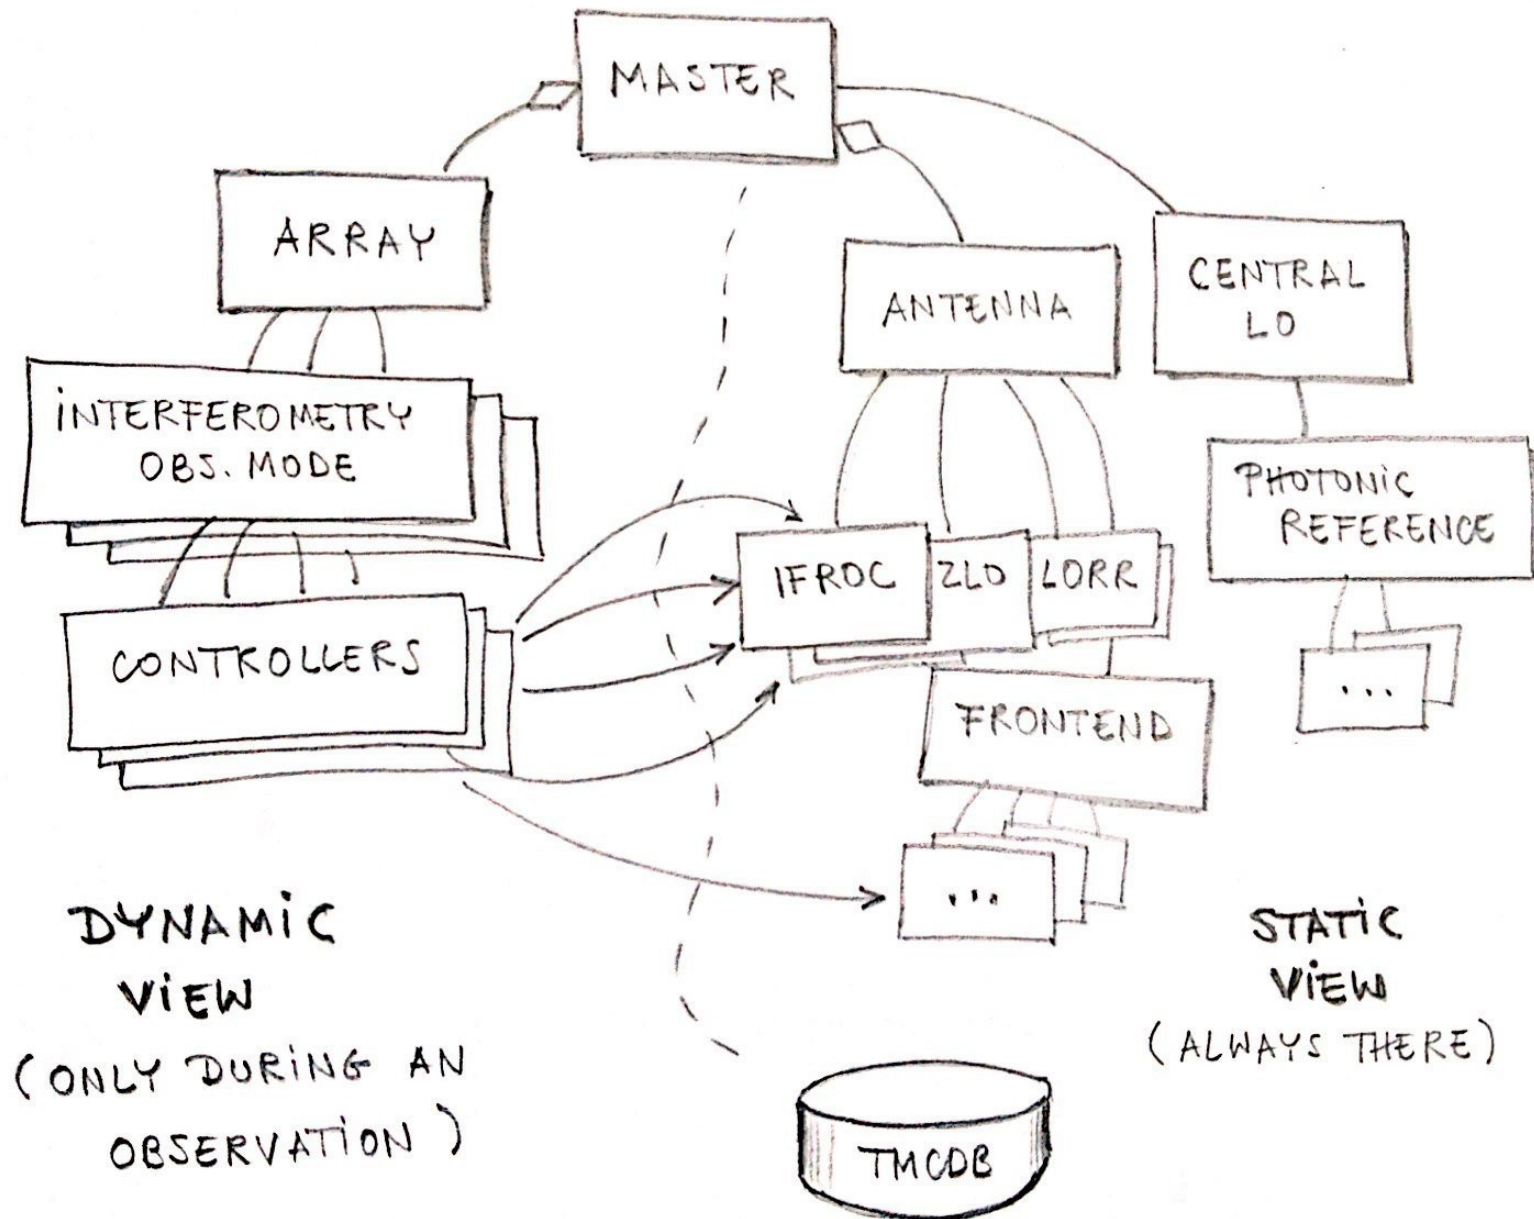 MASTER
ARRAY
ANTENNA
CENTRAL
LO
INTERFEROMETRY
OBS. MODE
PHOTONIC
REFERENCE
IFROC
2LO
LORR
CONTROLLERS
...
FRONTEND
...
DYNAMIC
VIEW
(ONLY DURING AN
OBSERVATION)
STATIC
VIEW
(ALWAYS THERE)
TMCDB